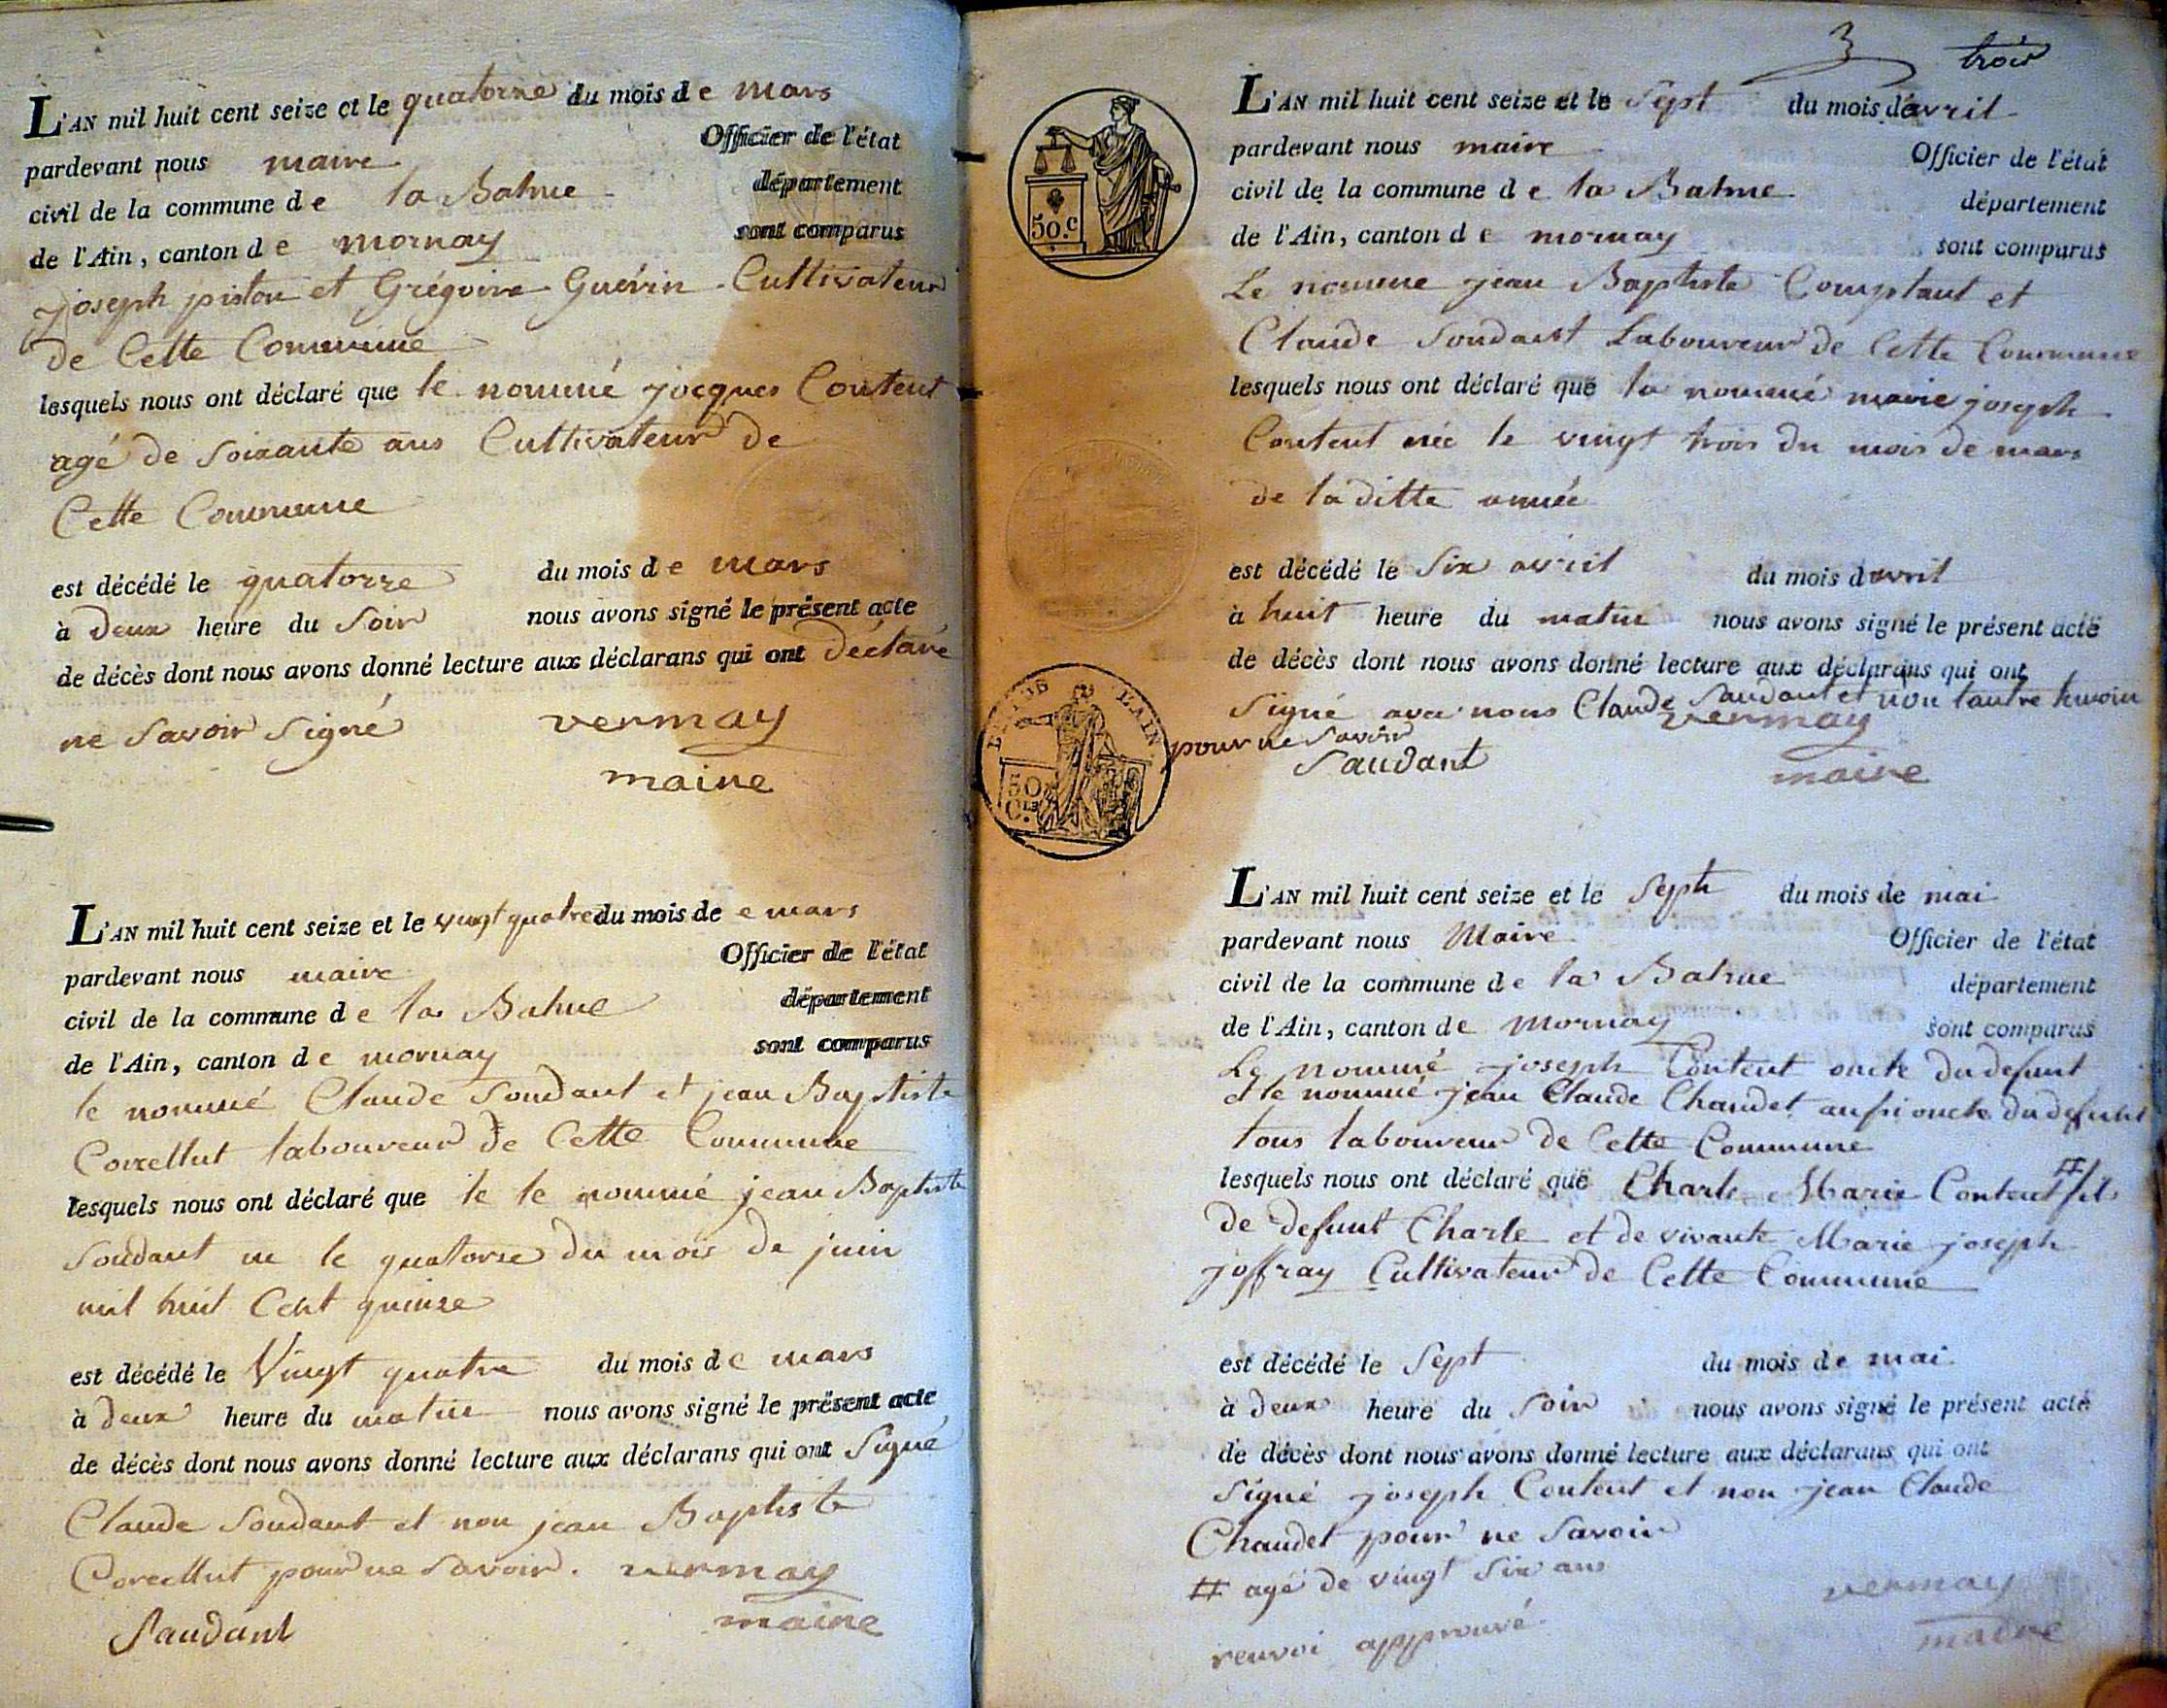 L'AN mil huit cent seize et le quatorze du mois de mars
pardevant nous maire Officier de l'état
civil de la commune de la Balme département
de l'Ain, canton de mornay sont comparus
joseph piston et Grégoire Guérin Cultivateur
de Cette Commune
lesquels nous ont déclaré que le nommé jacques Content
agé de soixante ans Cultivateur de
Cette Commune
est décédé le quatorze du mois de mars
à deux heure du soir nous avons signé le présent acte
de décès dont nous avons donné lecture aux déclarans qui ont déclaré
ne savoir signé vermay
maire
L'AN mil huit cent seize et le vingt quatre du mois de e mars
pardevant nous maire Officier de l'état
civil de la commune de la Balme département
de l'Ain, canton de mornay sont comparus
le nommé Claude soudant et jean Baptiste
laboureur de Cette Commune
lesquels nous ont déclaré que le le nommé jean Baptiste
soudant ne le quatorse du mois de juin
mil huit Cent quinse
est décédé le Vingt quatre du mois de mars
à deux heure du matin nous avons signé le présent acte
de décès dont nous avons donné lecture aux déclarans qui ont Signé
Claude soudant et non jean Baptiste
pour ne savoir. vermay
Saudant maire
3 trois
50.c
L'AN mil huit cent seize et le sept du mois davril
pardevant nous maire Officier de l'état
civil de la commune de la Balme département
de l'Ain, canton de mornay sont comparus
Le nomme jean Baptiste Comptant et
Claude soudant Laboureur de Cette Commune
lesquels nous ont déclaré que la nommé marie joseph
Content née le vingt trois du mois de mars
de la ditte année
est décédé le six avril du mois davril
à huit heure du matin nous avons signé le présent acte
de décès dont nous avons donné lecture aux déclarans qui ont
signé avec nous Claude saudant et non lautre temoin
pour ne savoir vermay
Saudant maire
AIN.
50
L'AN mil huit cent seize et le sept du mois de mai
pardevant nous Maire Officier de l'état
civil de la commune de la Balme département
de l'Ain, canton de Mornay sont comparus
Le nommé joseph Content oncle du defunt
et le nommé jean Claude Chaudet aussi oncle du defunt
tous laboureur de Cette Commune
lesquels nous ont déclaré que Charle Marie Content # fils
de defunt Charle et de vivante Marie joseph
joffray Cultivateur de Cette Commune
est décédé le sept du mois de mai
à deux heure du soir nous avons signé le présent acte
de décès dont nous avons donné lecture aux déclarans qui ont
signé joseph Content et non jean Claude
Chaudet pour ne savoir
# agé de vingt six ans
vermay
renvoi approuvé
maire